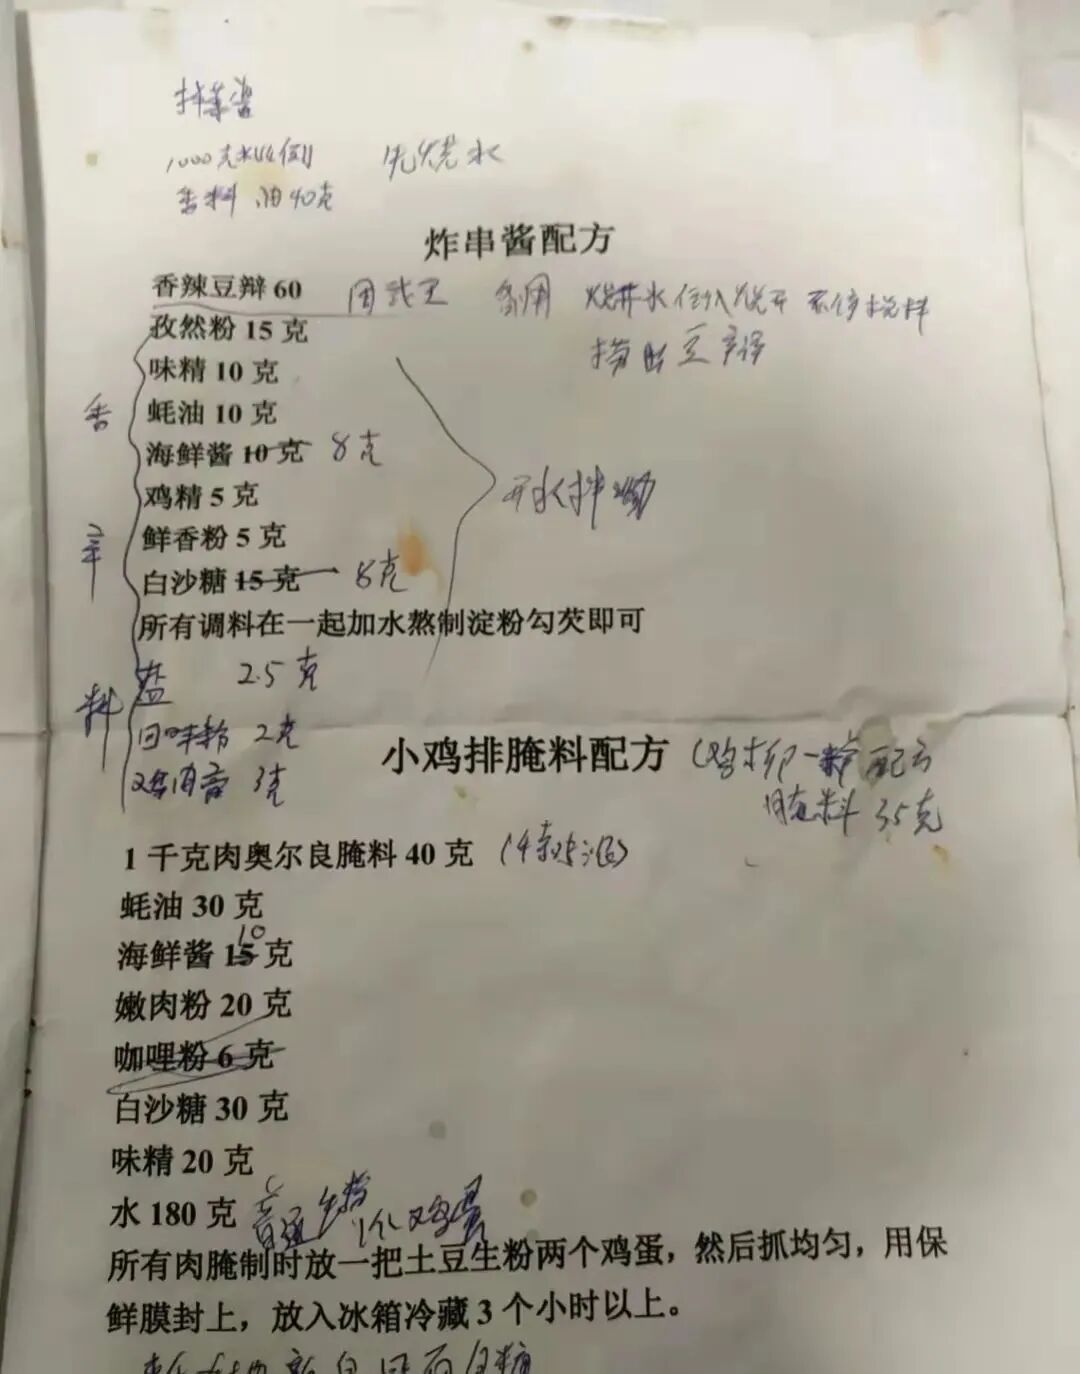 拌菜酱
1000克水比例 先烧水
香料油40克
炸串酱配方
香辣豆辩60 开水倒入烧开 不停搅拌
孜然粉 15 克
捞出豆
味精 10 克
香
蚝油 10 克
海鲜酱 10 克 8克
开水拌
鸡精 5 克
鲜香粉 5 克
辛
白沙糖 15 克 8克
所有调料在一起加水熬制淀粉勾芡即可
料 盐 2.5 克
回味粉 2克
小鸡排腌料配方 (鸡柳一样配方
鸡肉膏 3克
腌料 35克
1 千克肉奥尔良腌料 40 克
蚝油 30 克
海鲜酱 15 克 10
嫩肉粉 20 克
咖哩粉 6 克
白沙糖 30 克
味精 20 克
水 180 克 普通 1个鸡蛋
所有肉腌制时放一把土豆生粉两个鸡蛋，然后抓均匀，用保
鲜膜封上，放入冰箱冷藏 3 个小时以上。